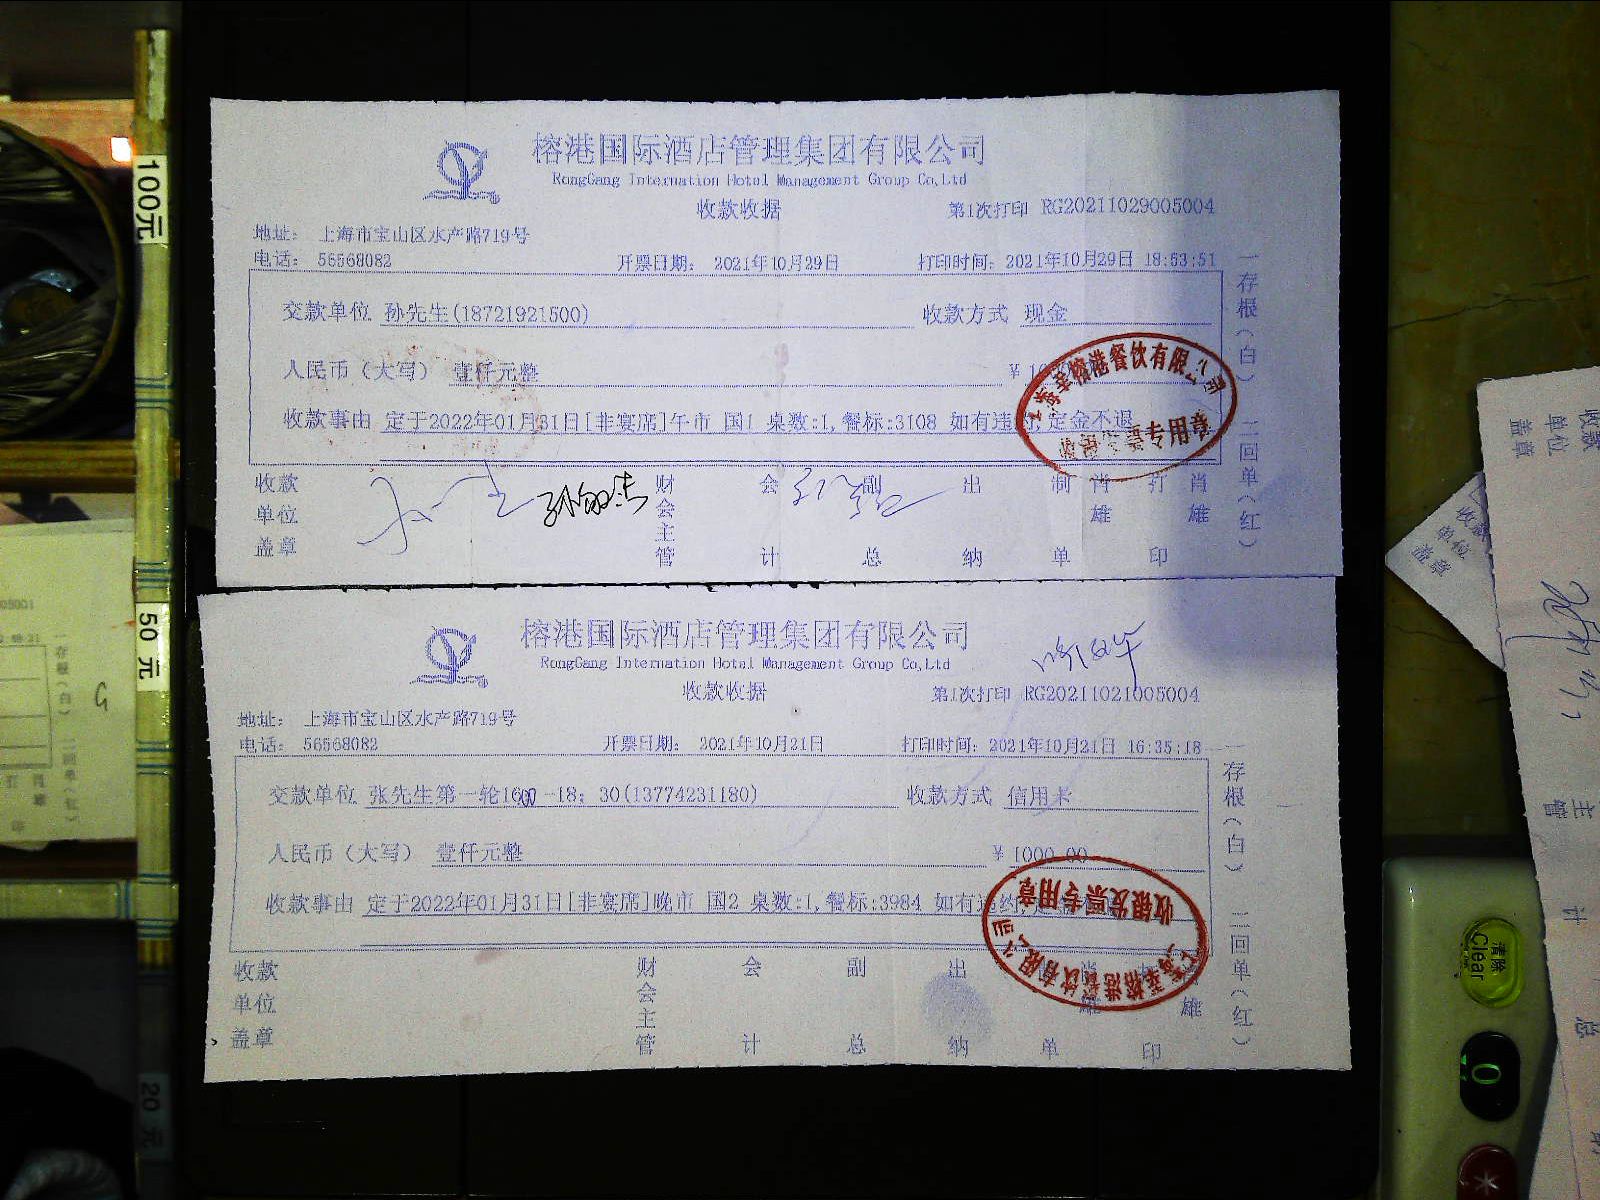 榕港国际酒店管理集团有限公司
RongGang Internation Hotel Management Group Co,Ltd
收款收据
第1次打印 RG20211029005004
地址： 上海市宝山区水产路719号
电话： 56568082 开票日期： 2021年10月29日 打印时间：2021年10月29日 18:53:51
交款单位 孙先生(18721921500) 收款方式 现金
人民币（大写） 壹仟元整 ￥1
收款事由 定于2022年01月31日[非宴席]午市 国1 桌数:1,餐标:3108 如有违约,定金不退
收款单位盖章 财会主管 会计 副总 出纳 制单 肖雄 打印 肖雄
一存根（白） 二回单（红）
榕港餐饮有限公司
专用章
榕港国际酒店管理集团有限公司
RongGang Internation Hotel Management Group Co,Ltd
收款收据
第1次打印 RG20211021005004
地址： 上海市宝山区水产路719号
电话： 56568082 开票日期： 2021年10月21日 打印时间：2021年10月21日 16:35:18
交款单位 张先生第一轮1600-18：30(13774231180) 收款方式 信用卡
人民币（大写） 壹仟元整 ￥1000.00
收款事由 定于2022年01月31日[非宴席]晚市 国2 桌数:1,餐标:3984 如有违约,
收款单位盖章 财会主管 会计 副总 出纳 单 雄 印 雄
一存根（白） 二回单（红）
收银发票专用章
100元
50元
20元
收款单位盖章
收款单位盖章
主管
计
总
清除
Clear
0
*